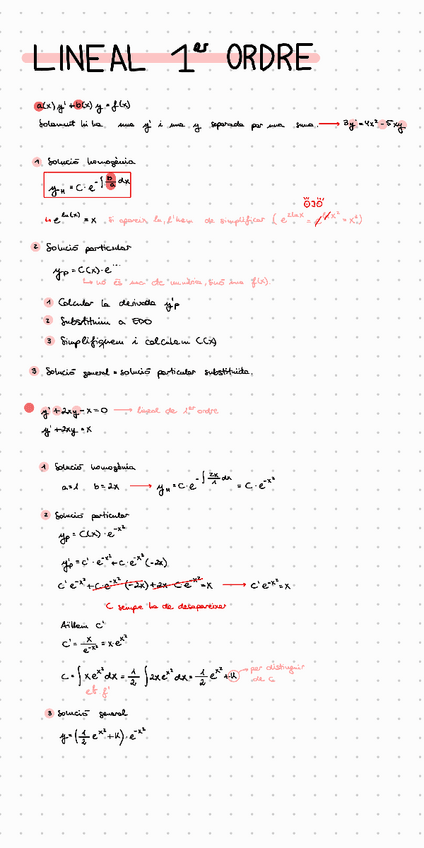 LINEAL 1er ORDRE
a(x) y' + b(x) y = f(x)
Solament hi ha una y' i una y separada per una suma. → 3y' = 4x² - 5xy
1 Solució homogènia
y_H = C · e^(-∫ b/a dx)
↳ e^(ln(x)) = x. Si apareix ln, l'hem de simplificar
2 Solució particular
y_P = C(x) · e^...
↳ no és "una" de numèrica, sinó una f(x).
1 Calcular la derivada y'p
2 Substituïm a EDO
3 Simplifiquem i calculem C(x)
3 Solució general = solució particular substituïda.
y' + 2xy - x = 0 → lineal de 1er ordre
y' + 2xy = x
1 Solució homogènia
a = 1 b = 2x → y_H = C · e^(-∫ 2x/1 dx) = C · e^(-x²)
2 Solució particular
y_P = C(x) · e^(-x²)
y'_P = C' · e^(-x²) + C · e^(-x²) (-2x)
C' e^(-x²) + C · e^(-x²) (-2x) + 2x · C · e^(-x²) = x → C' e^(-x²) = x
C sempre ha de desaparèixer
Aïllem C'
C' = x / e^(-x²) = x · e^(x²)
C = ∫ x e^(x²) dx = 1/2 ∫ 2x e^(x²) dx = 1/2 e^(x²) + K → per distingir de C
e^f f'
3 Solució general
y = (1/2 e^(x²) + K) · e^(-x²)